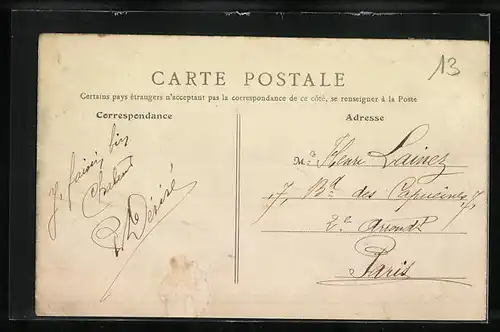 13
CARTE POSTALE
Certains pays étrangers n'acceptant pas la correspondance de ce côté, se renseigner à la Poste
Correspondance
Adresse
Désiré
Mr Henri Lainez
17, Bd des Capucines, 17,
2e Arrondt
Paris